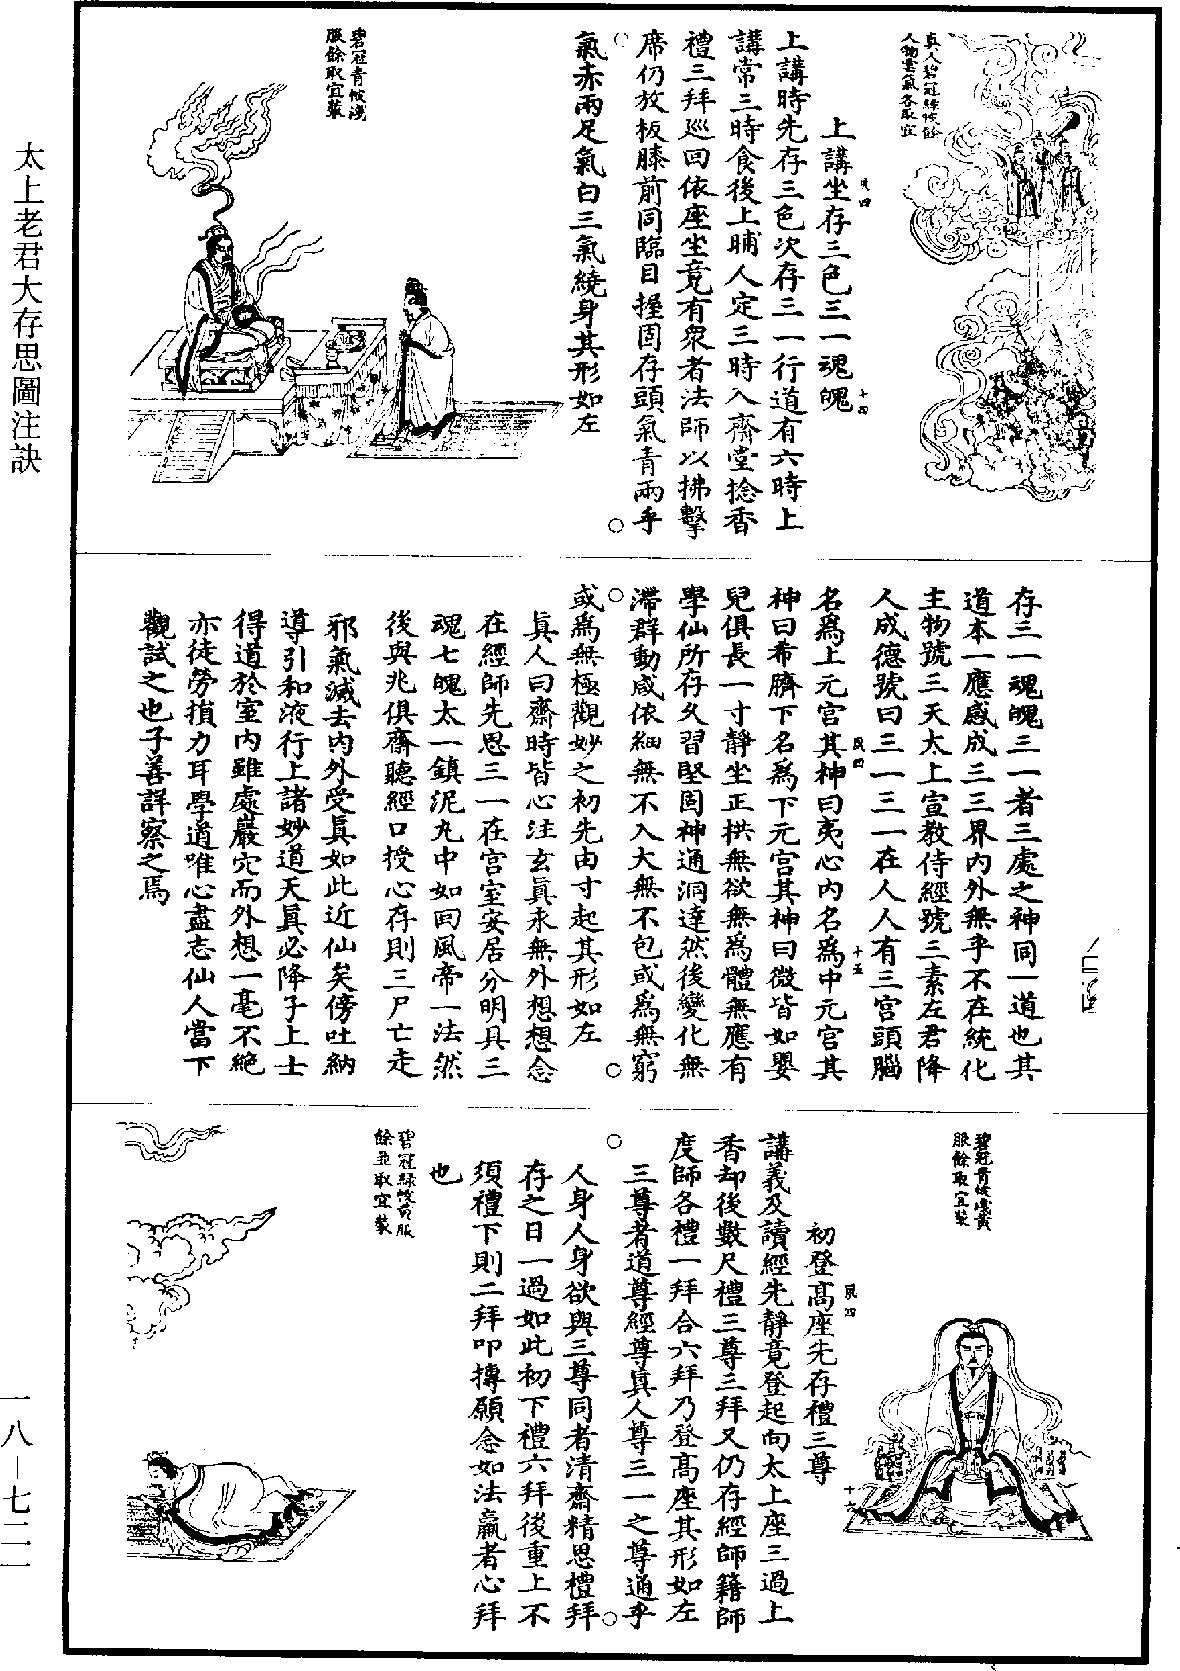 太上老君大存思圖注訣
一八—七二一
真人碧冠綠帔餘
人物雲氣各取宜
上講坐存三色三一魂魄
夙四
十四
上講時先存三色次存三一行道有六時上
講常三時食後上晡人定三時入齋堂捻香
禮三拜巡回依座坐竟有衆者法師以拂擊
席仍放板膝前同臨目握固存頭氣青兩手
氣赤兩足氣白三氣繞身其形如左
碧冠青帔淺
服餘取宜裝
存三一魂魄三一者三處之神同一道也其
道本一應感成三三界內外無乎不在統化
主物號三天太上宣教侍經號三素左君降
人成德號曰三一三一在人人有三宮頭腦
名爲上元宮其神曰夷心內名爲中元宮其
夙四
十五
神曰希臍下名爲下元宮其神曰微皆如嬰
兒俱長一寸靜坐正拱無欲無爲體無應有
學仙所存久習堅固神通洞達然後變化無
滯群動咸依細無不入大無不包或爲無窮
或爲無極觀妙之初先由寸起其形如左
真人曰齋時皆心注玄真永無外想想念
在經師先思三一在宮室安居分明具三
魂七魄太一鎮泥丸中如回風帝一法然
後與兆俱齋聽經口授心存則三尸亡走
邪氣滅去內外受真如此近仙矣傍吐納
導引和液行上諸妙道天真必降子上士
得道於室內雖處巖穴而外想一毫不絕
亦徒勞損力耳學道唯心盡志仙人當下
觀試之也子善詳察之焉
碧冠青帔淺黃
服餘取宜裝
初登高座先存禮三尊
夙四
十六
講義及讀經先靜竟登起向太上座三過上
香却後數尺禮三尊三拜又仍存經師籍師
度師各禮一拜合六拜乃登高座其形如左
三尊者道尊經尊真人尊三一之尊通乎
人身人身欲與三尊同者清齋精思禮拜
存之日一過如此初下禮六拜後重上不
須禮下則二拜叩搏願念如法羸者心拜
也
碧冠綠帔黃服
餘並取宜裝